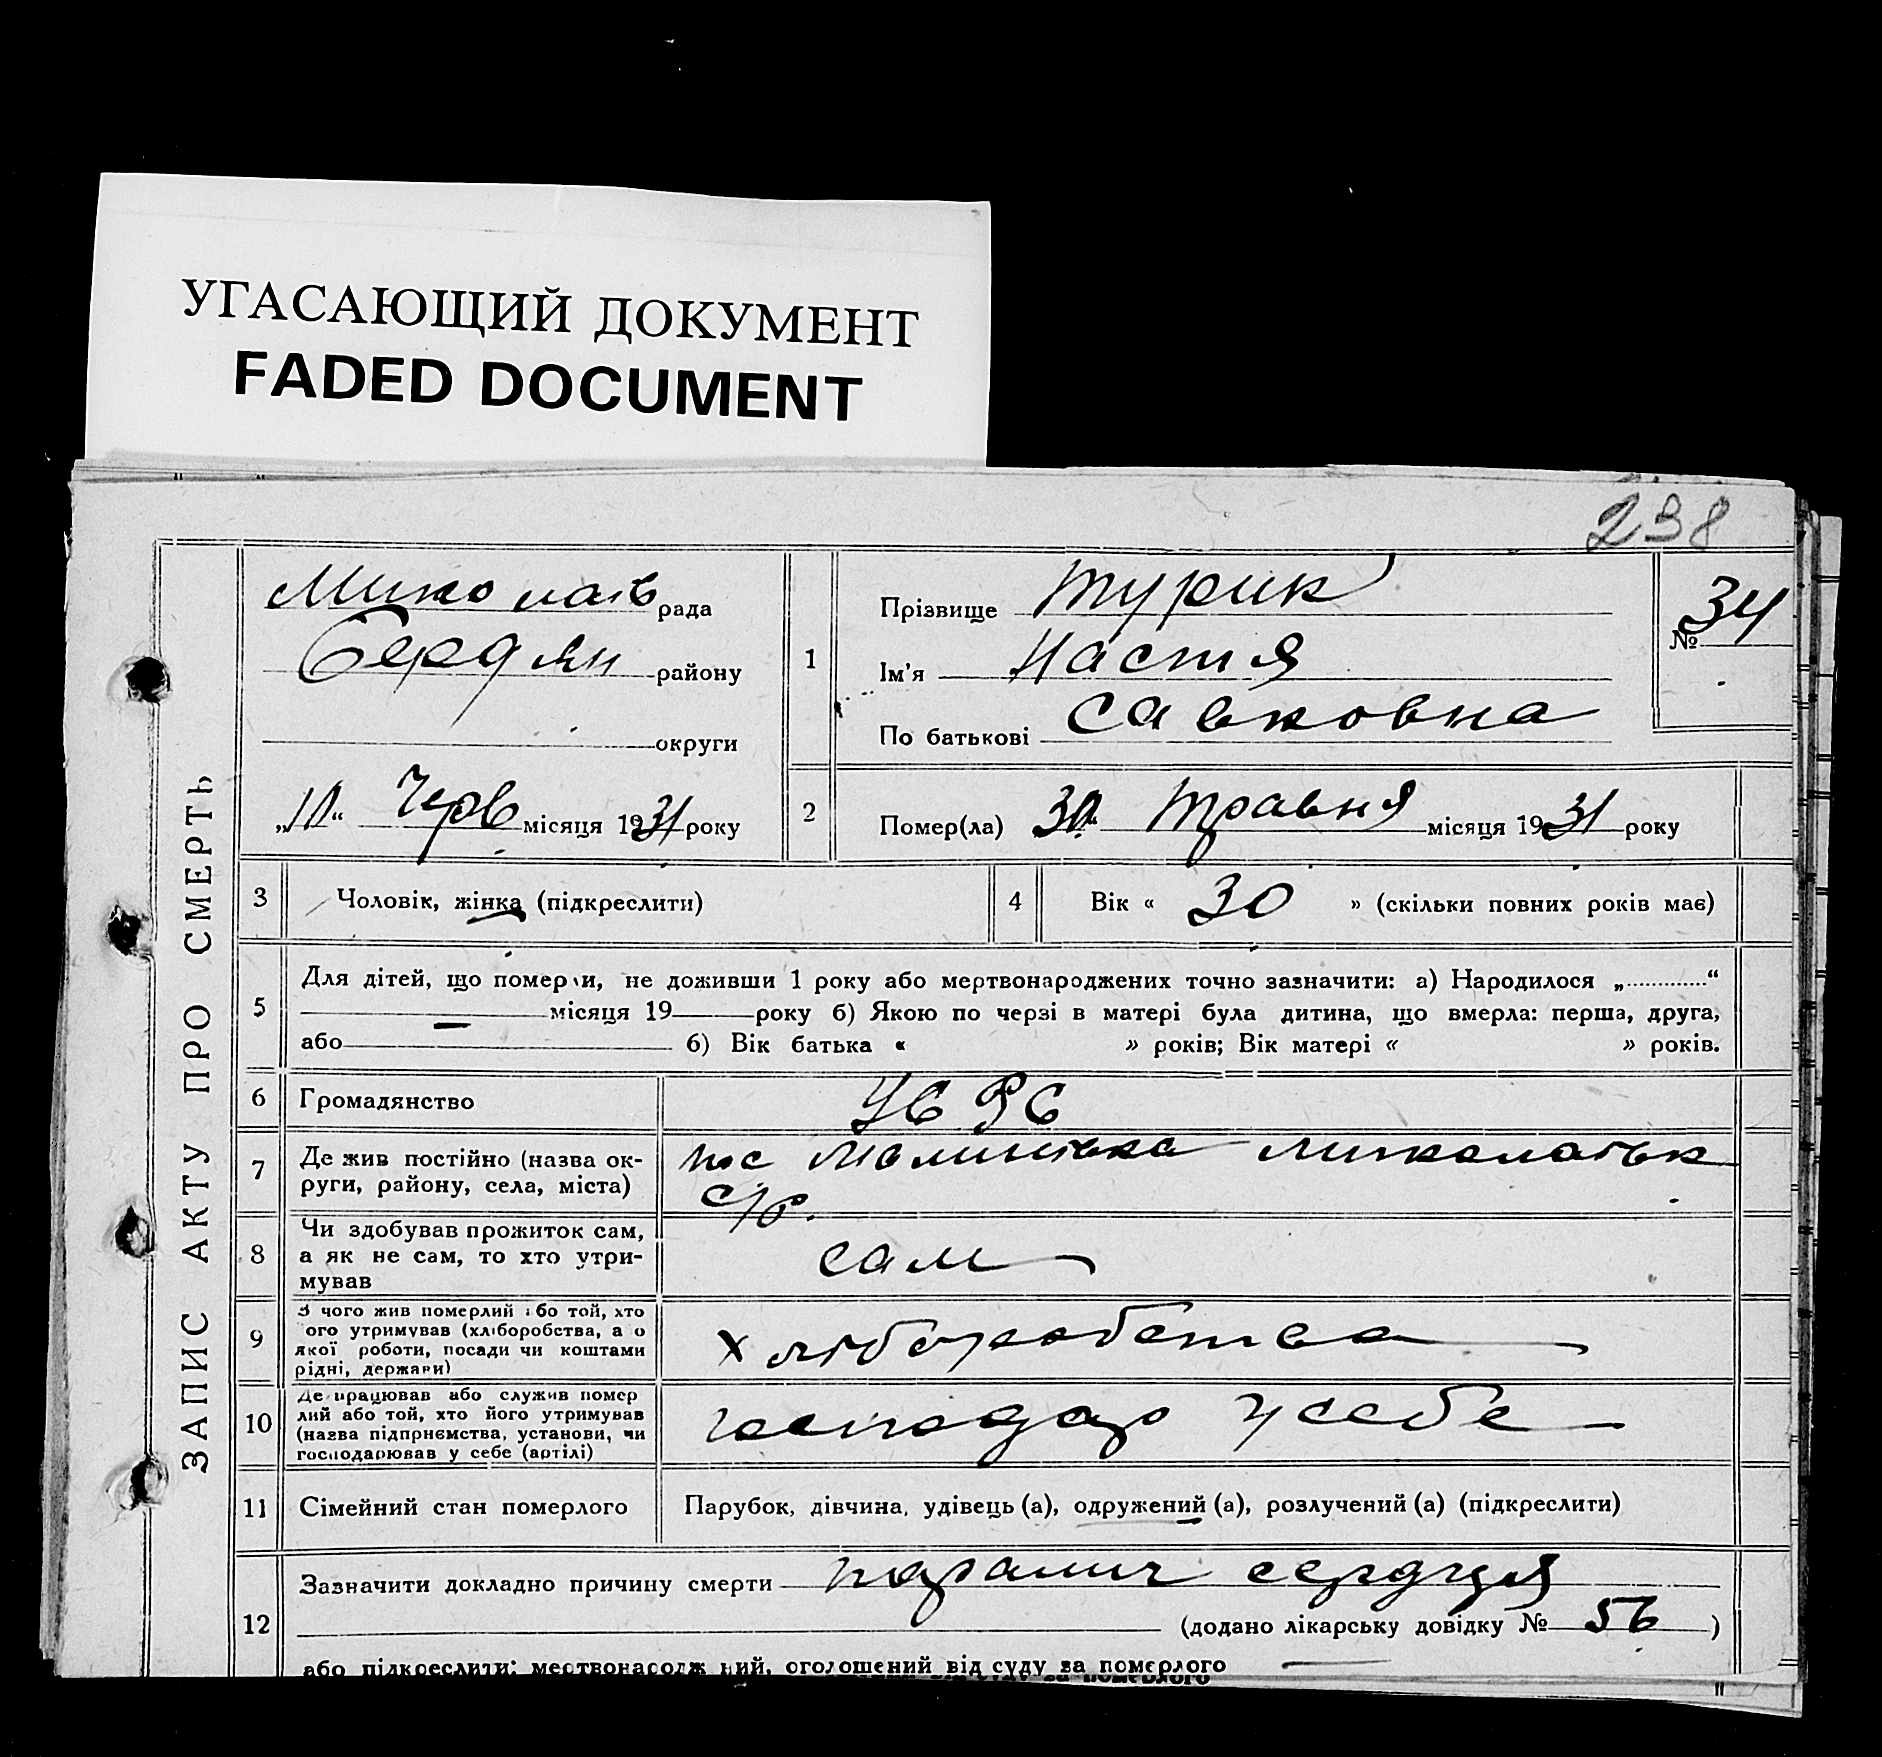 УГАСАЮЩИЙ ДОКУМЕНТ
FADED DOCUMENT
238
ЗАПИС АКТУ ПРО СМЕРТЬ
Миколаїв рада
Бердян району
округи
„10“ Черв місяця 1931 року
1
Прізвище Турик
Ім'я Настя
По батькові Савковна
№ 34
2
Помер(ла) 30 Травня місяця 1931 року
3 Чоловік, жінка (підкреслити)
4 Вік « 30 » (скільки повних років має)
5
Для дітей, що померли, не доживши 1 року або мертвонароджених точно зазначити: а) Народилося „............“
— місяця 19 року б) Якою по черзі в матері була дитина, що вмерла: перша, друга,
або 6) Вік батька « » років; Вік матері « » років.
6 Громадянство УСРС
7 Де жив постійно (назва ок-
руги, району, села, міста)
пос Миколаївськ
с/р.
8 Чи здобував прожиток сам,
а як не сам, то хто утри-
мував
сам
9 З чого жив померлий або той, хто
ого утримував (хліборобства, а о
якої роботи, посади чи коштами
рідні, держави)
хліборобства
10 Де працював або служив помер
лий або той, хто його утримував
(назва підприємства, установи, чи
господарював у себе (артілі)
господар у себе
11 Сімейний стан померлого Парубок, дівчина, удівець (а), одружений (а), розлучений (а) (підкреслити)
12
Зазначити докладно причину смерти параліч сердця
(додано лікарську довідку № 56 )
або підкреслити: мертвонароджений, оголошений від суду за померлого —